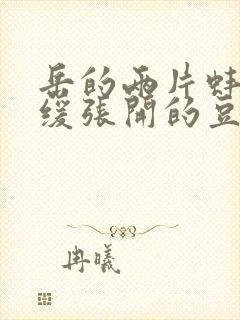 岳的两片蚌
缓张开的豆
冉曦